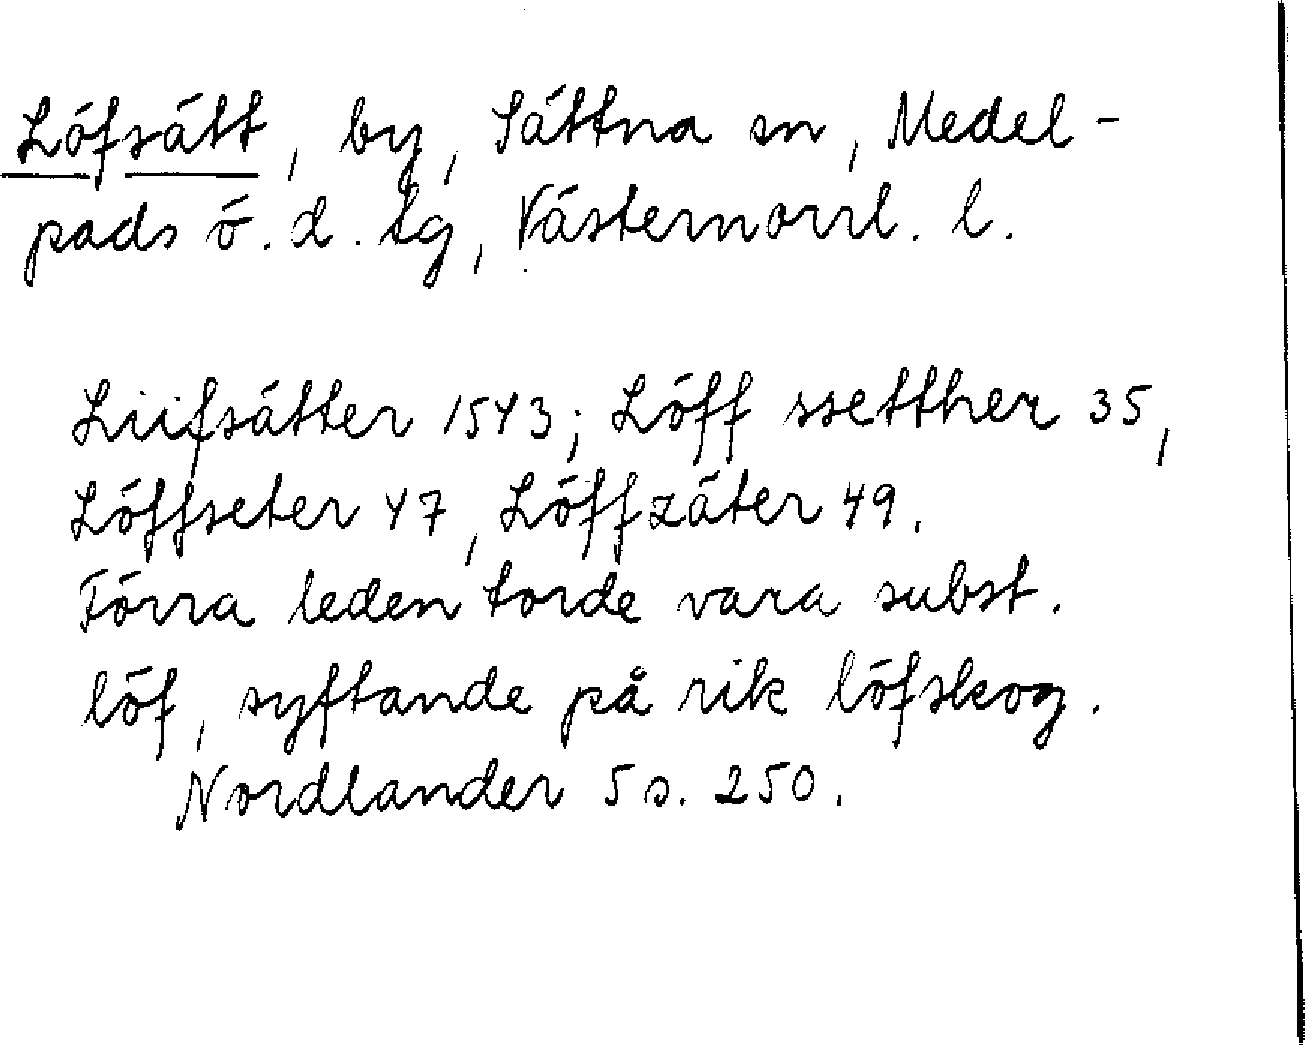 Löfsätt, by, Sättna sn, Medel-
pads ö. d. lg, Västernorrl. l.
Liifsätter 1543; Löff ssetther 35,
Löffseter 47, Löffzäter 49.
Förra leden torde vara subst.
löf, syftande på rik löfskog.
Nordlander 5 s. 250.